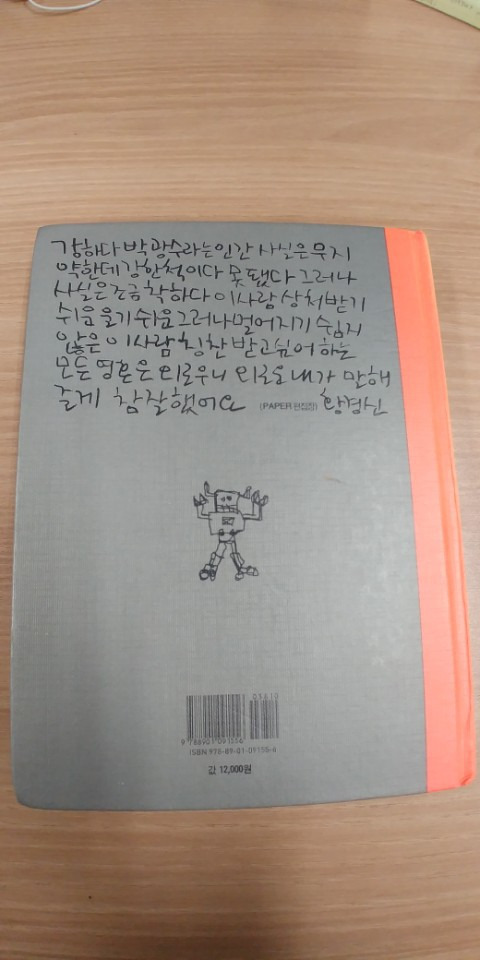 강하다 박광수라는 인간 사실은 무지
약한데 강한척이다 못됐다 그러나
사실은 조금 착하다 이사람 상처받기
쉬운 울기 쉬운 그러나 멀어지기 쉽지
않은 이사람 칭찬 받고 싶어 하는
모든 영혼은 외로우니 위로로 내가 말해
줄게 참 잘했어요 (PAPER 편집장) 황경신
05610
9 788901 091556
ISBN 978-89-01-09155-6
값 12,000원